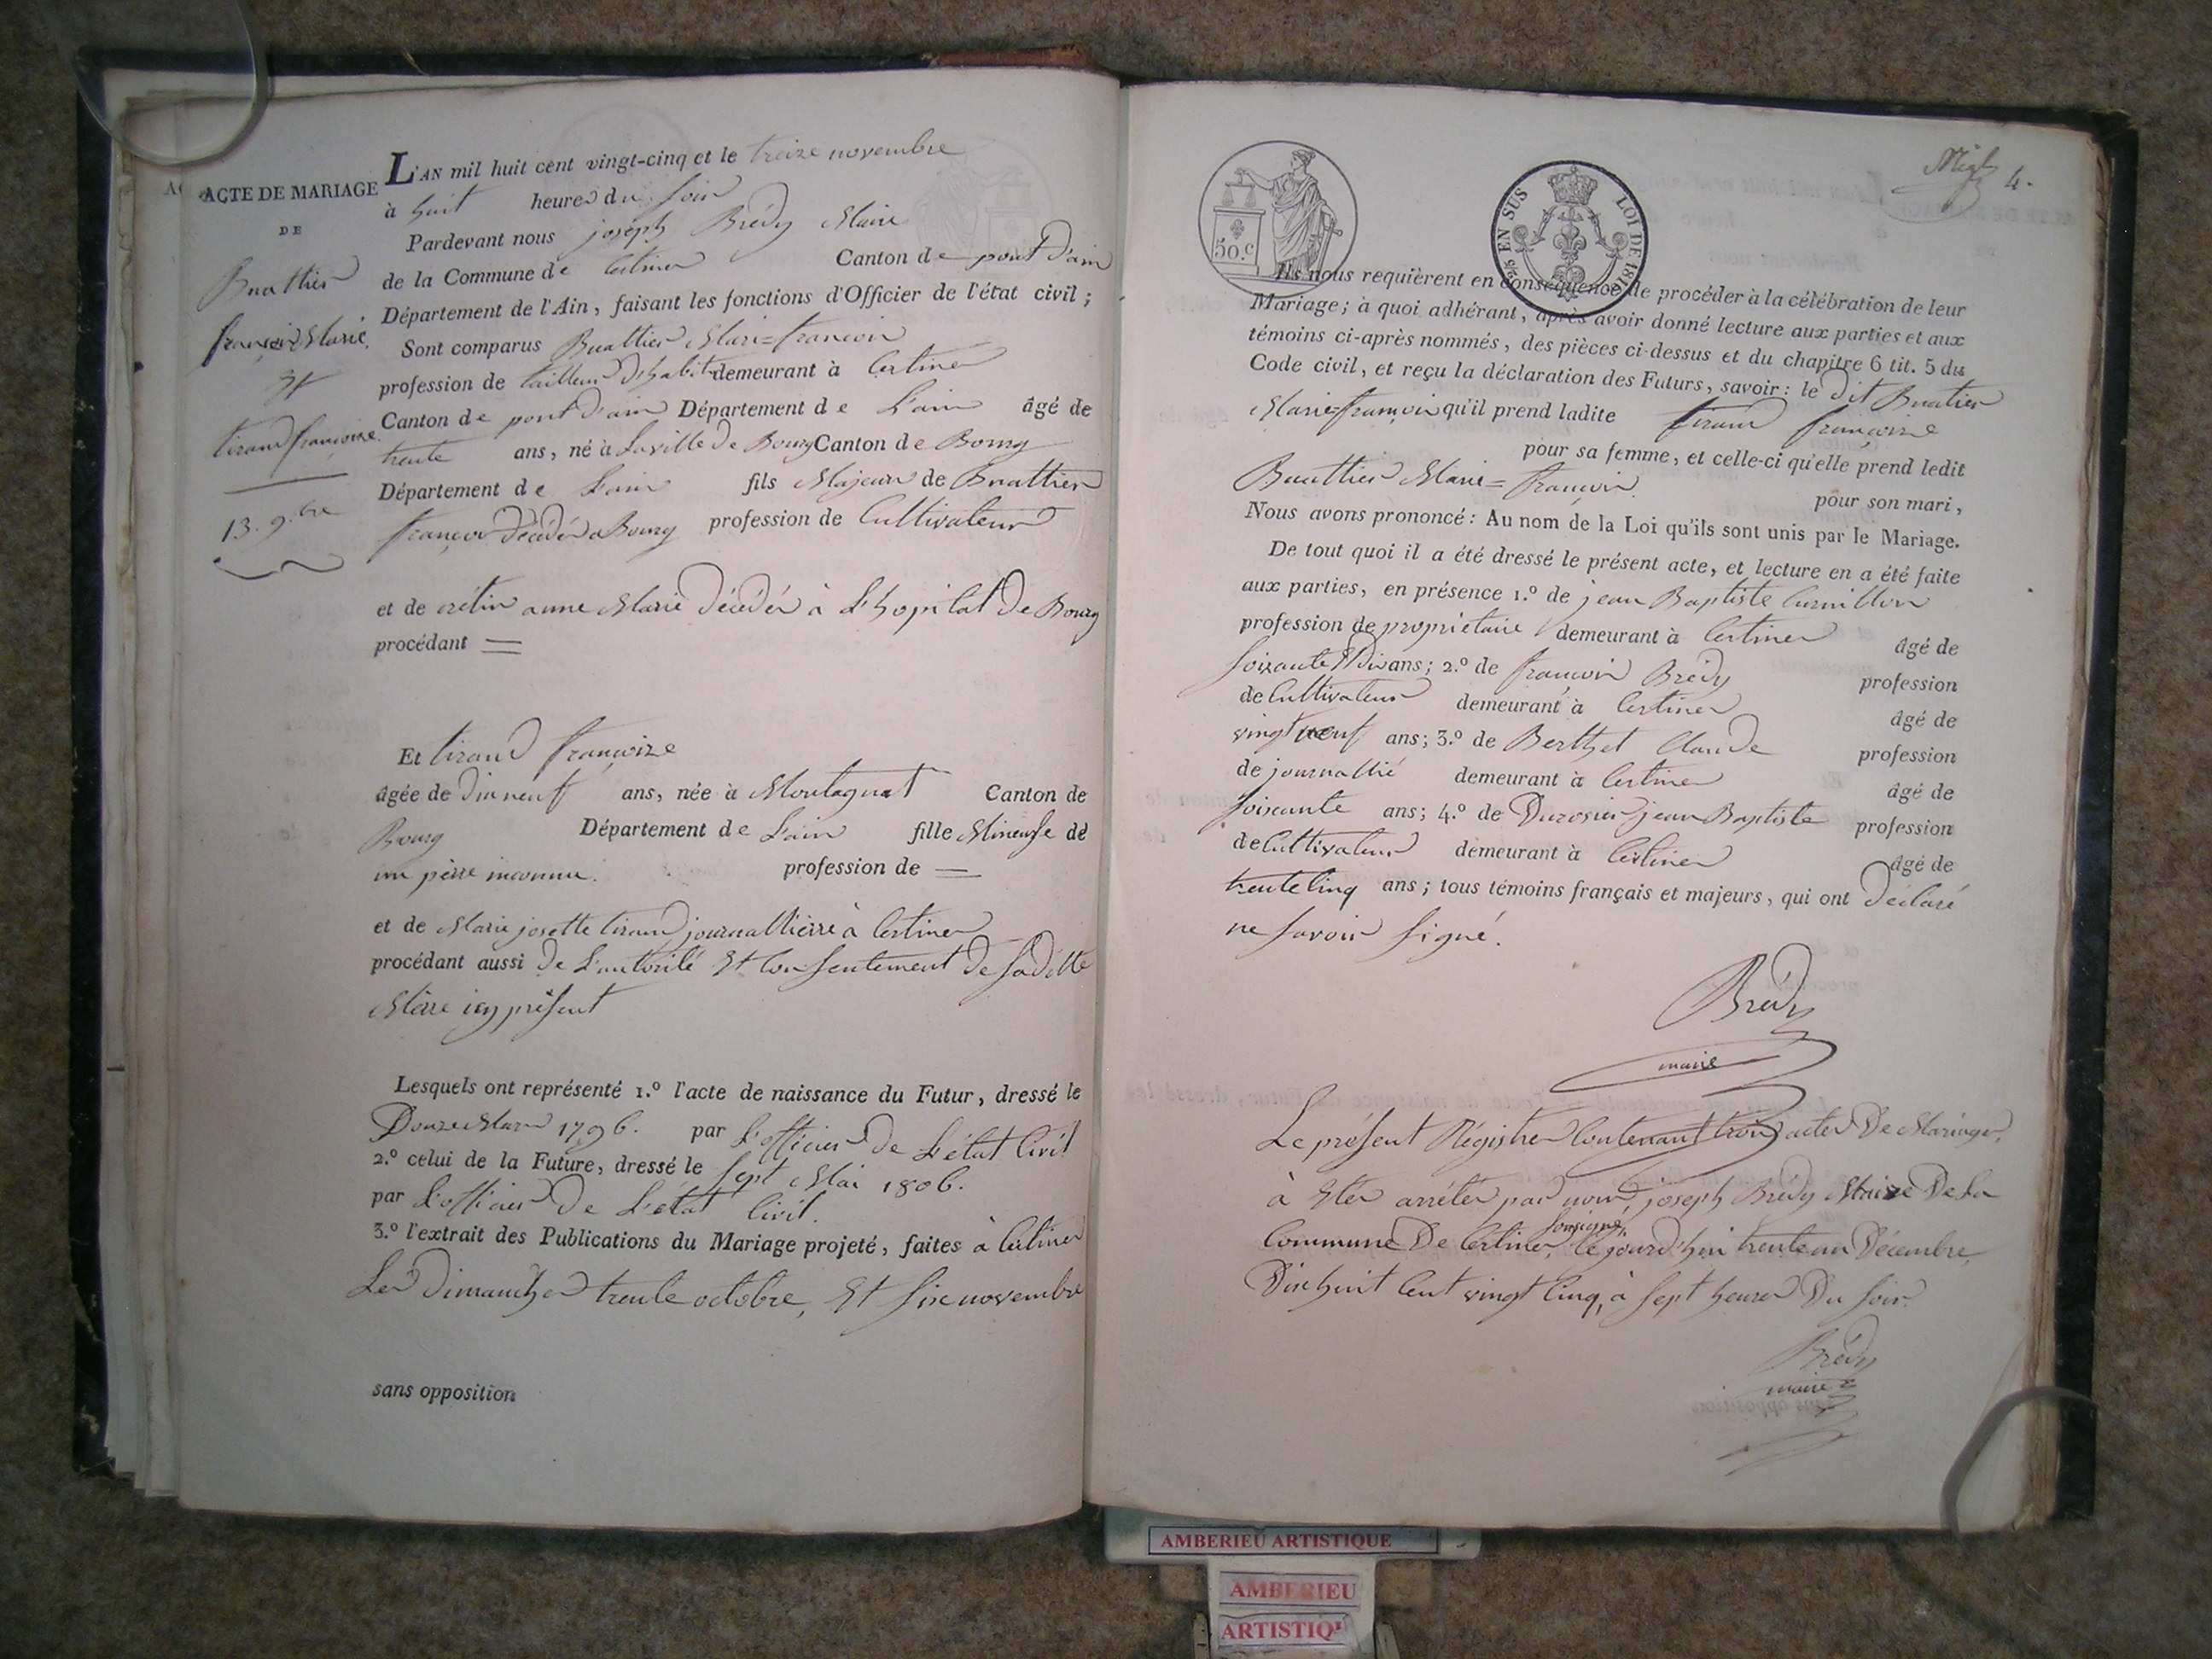 ACTE DE MARIAGE
DE
Buathier
françois Marie
Et
tirand françoise
13. 9.bre
L'AN mil huit cent vingt-cinq et le treize novembre
à huit heures du soir
Pardevant nous joseph Brédy Maire
de la Commune de Certines Canton de pont d'ain
Département de l'Ain, faisant les fonctions d'Officier de l'état civil;
Sont comparus Buathier Marie=françois
profession de tailleur d'habit demeurant à Certines
Canton de pont d'ain Département de L'ain âgé de
trente ans, né à Laville de Bourg Canton de Bourg
Département de L'ain fils Majeur de Buathier
françois décédé a Bourg profession de Cultivateur
et de crétin anne Marie décédée à L'hopital de Bourg
procédant =
Et tirand françoize
âgée de dix neuf ans, née à Montagnat Canton de
Bourg Département de L'ain fille Mineure de
un père inconnu. profession de =
et de Marie josette tirand journallière à Certines
procédant aussi de L'autorité Et Consentement de sadette
Mère icy présent
Lesquels ont représenté 1.º l'acte de naissance du Futur, dressé le
Douze Mars 1796. par L'officier de L'état Civil
2.º celui de la Future, dressé le sept Mai 1806.
par L'officier de L'état Civil.
3.º l'extrait des Publications du Mariage projeté, faites à Certines
Les dimanches trente octobre, Et six novembre
sans opposition
4.
50.C
25 EN SUS LOI DE 181
Ils nous requièrent en conséquence de procéder à la célébration de leur
Mariage; à quoi adhérant, après avoir donné lecture aux parties et aux
témoins ci-après nommés, des pièces ci-dessus et du chapitre 6 tit. 5 du
Code civil, et reçu la déclaration des Futurs, savoir: le dit Buatier
Marie=françois qu'il prend ladite tirand françoise
pour sa femme, et celle-ci qu'elle prend ledit
Buathier Marie=françois. pour son mari,
Nous avons prononcé: Au nom de la Loi qu'ils sont unis par le Mariage.
De tout quoi il a été dressé le présent acte, et lecture en a été faite
aux parties, en présence 1.º de jean Baptiste Curnillon
profession de propriétaire demeurant à Certines âgé de
soixante Et dix ans; 2.º de françois Brédy profession
de Cultivateur demeurant à Certines âgé de
vingt neuf ans; 3.º de Berthet Claude profession
de journallié demeurant à Certines âgé de
soixante ans; 4.º de Durosier jean Baptiste profession
de Cultivateur demeurant à Certines âgé de
trente Cinq ans; tous témoins français et majeurs, qui ont déclaré
ne savoir signé.
Brédy
maire
Le présent Régistre Contenant trois actes De Mariage,
à Eter arrêter par nous, joseph Brédy Maire De La
Commune De Certines, sousigné, Cejourd'hui trente un Décembre
Dix huit Cent vingt Cinq, à sept heures Du soir.
Brédy
maire
AMBERIEU ARTISTIQUE
AMBERIEU
ARTISTIQ